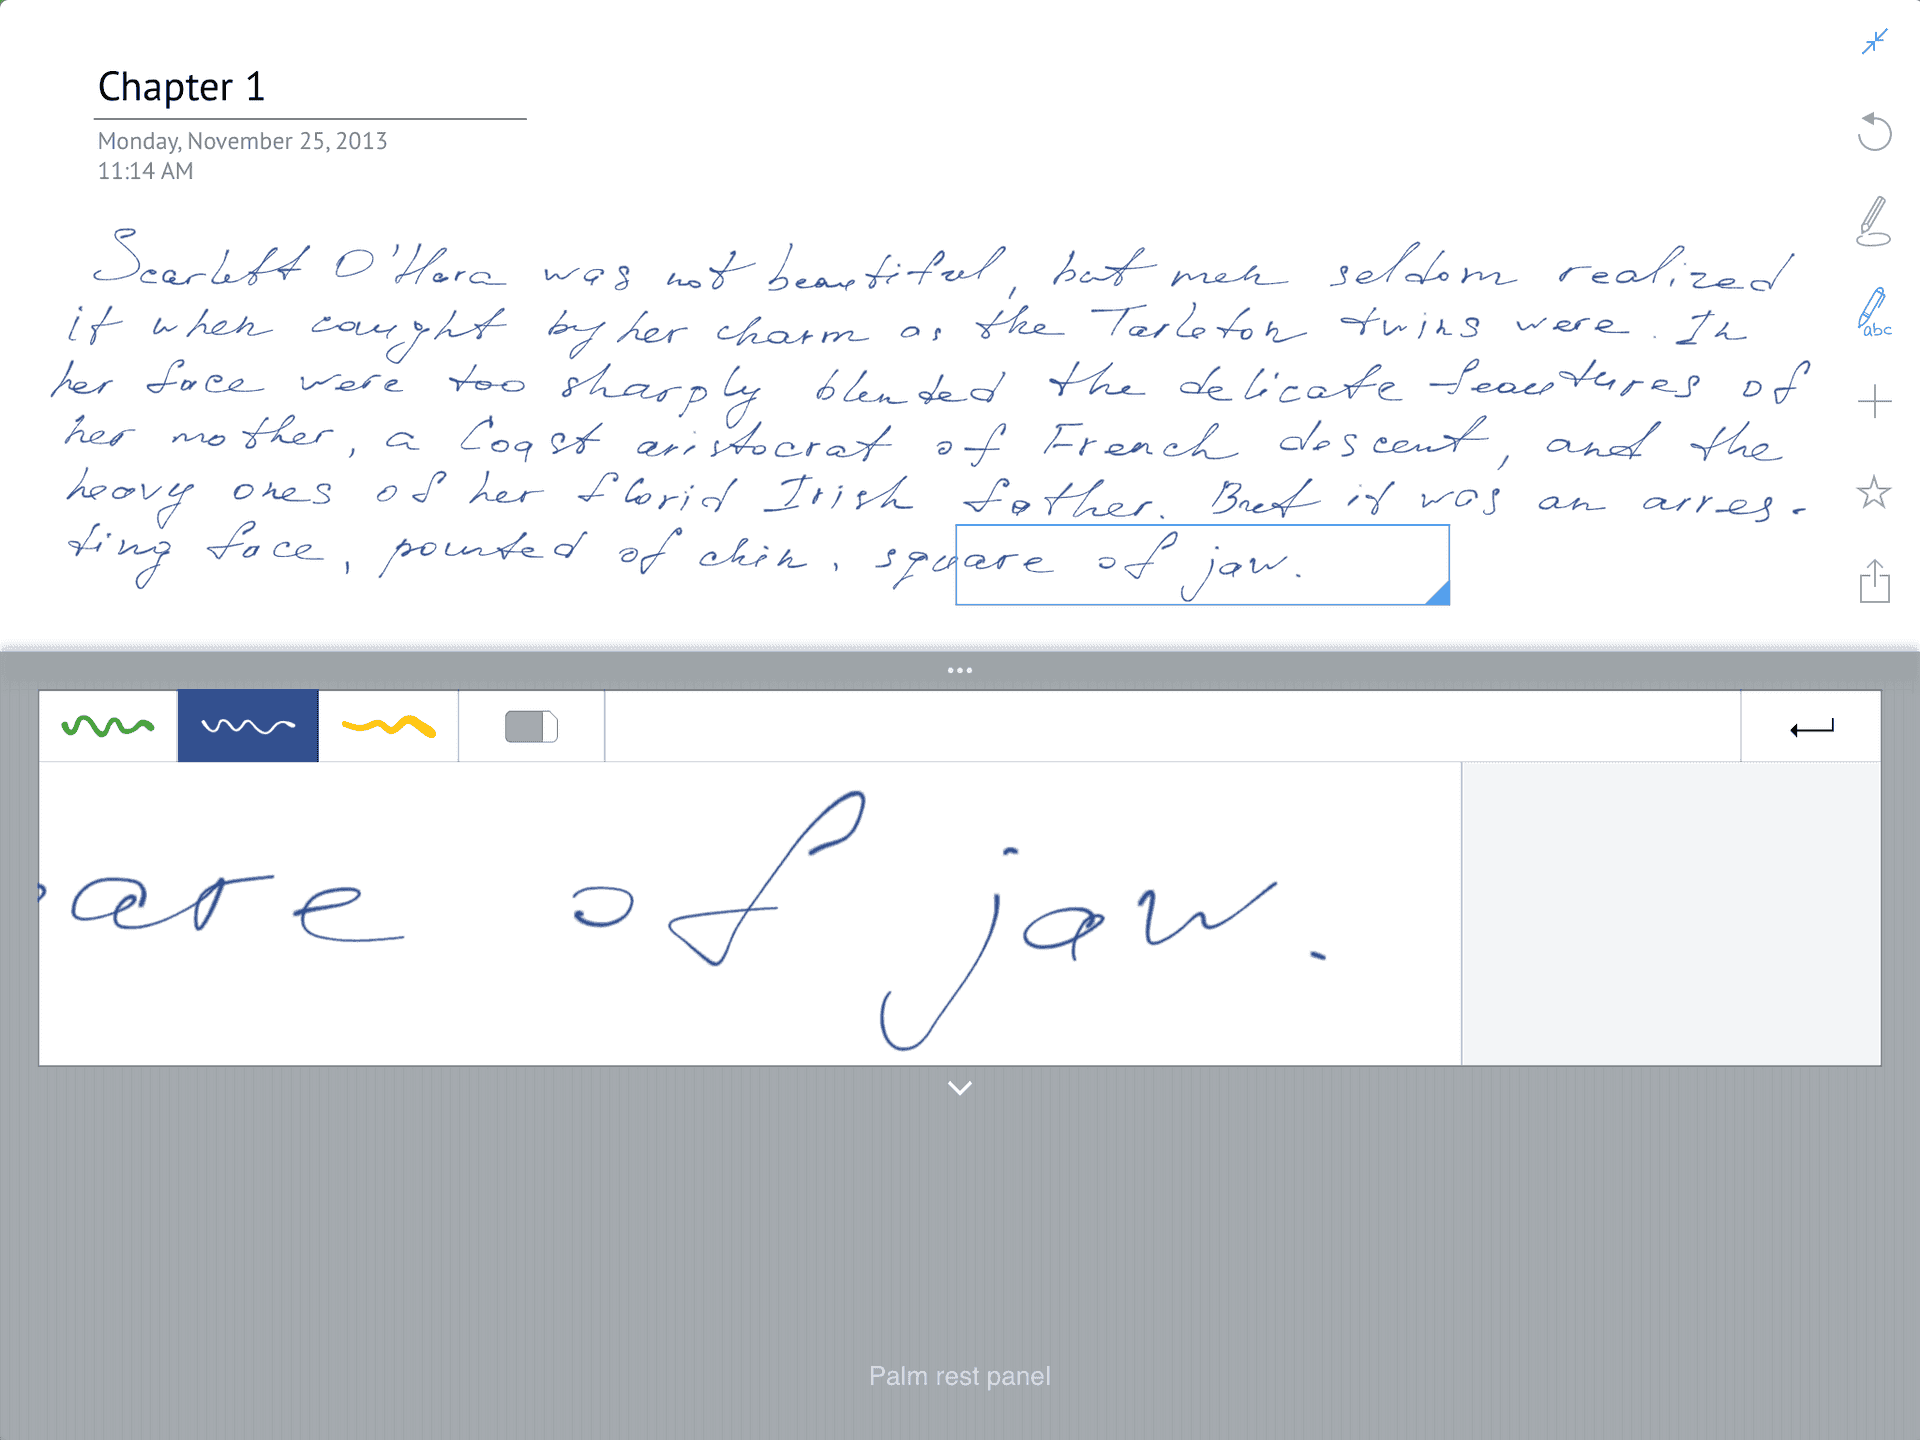 Chapter 1
Monday, November 25, 2013
11:14 AM
Scarlett O'Hara was not beautiful, but men seldom realized
it when caught by her charm as the Tarleton twins were. In
her face were too sharply blended the delicate feautures of
her mother, a Coast aristocrat of French descent, and the
heavy ones of her florid Irish father. But it was an arres-
ting face, pointed of chin, square of jaw.
abc
are of jaw.
Palm rest panel